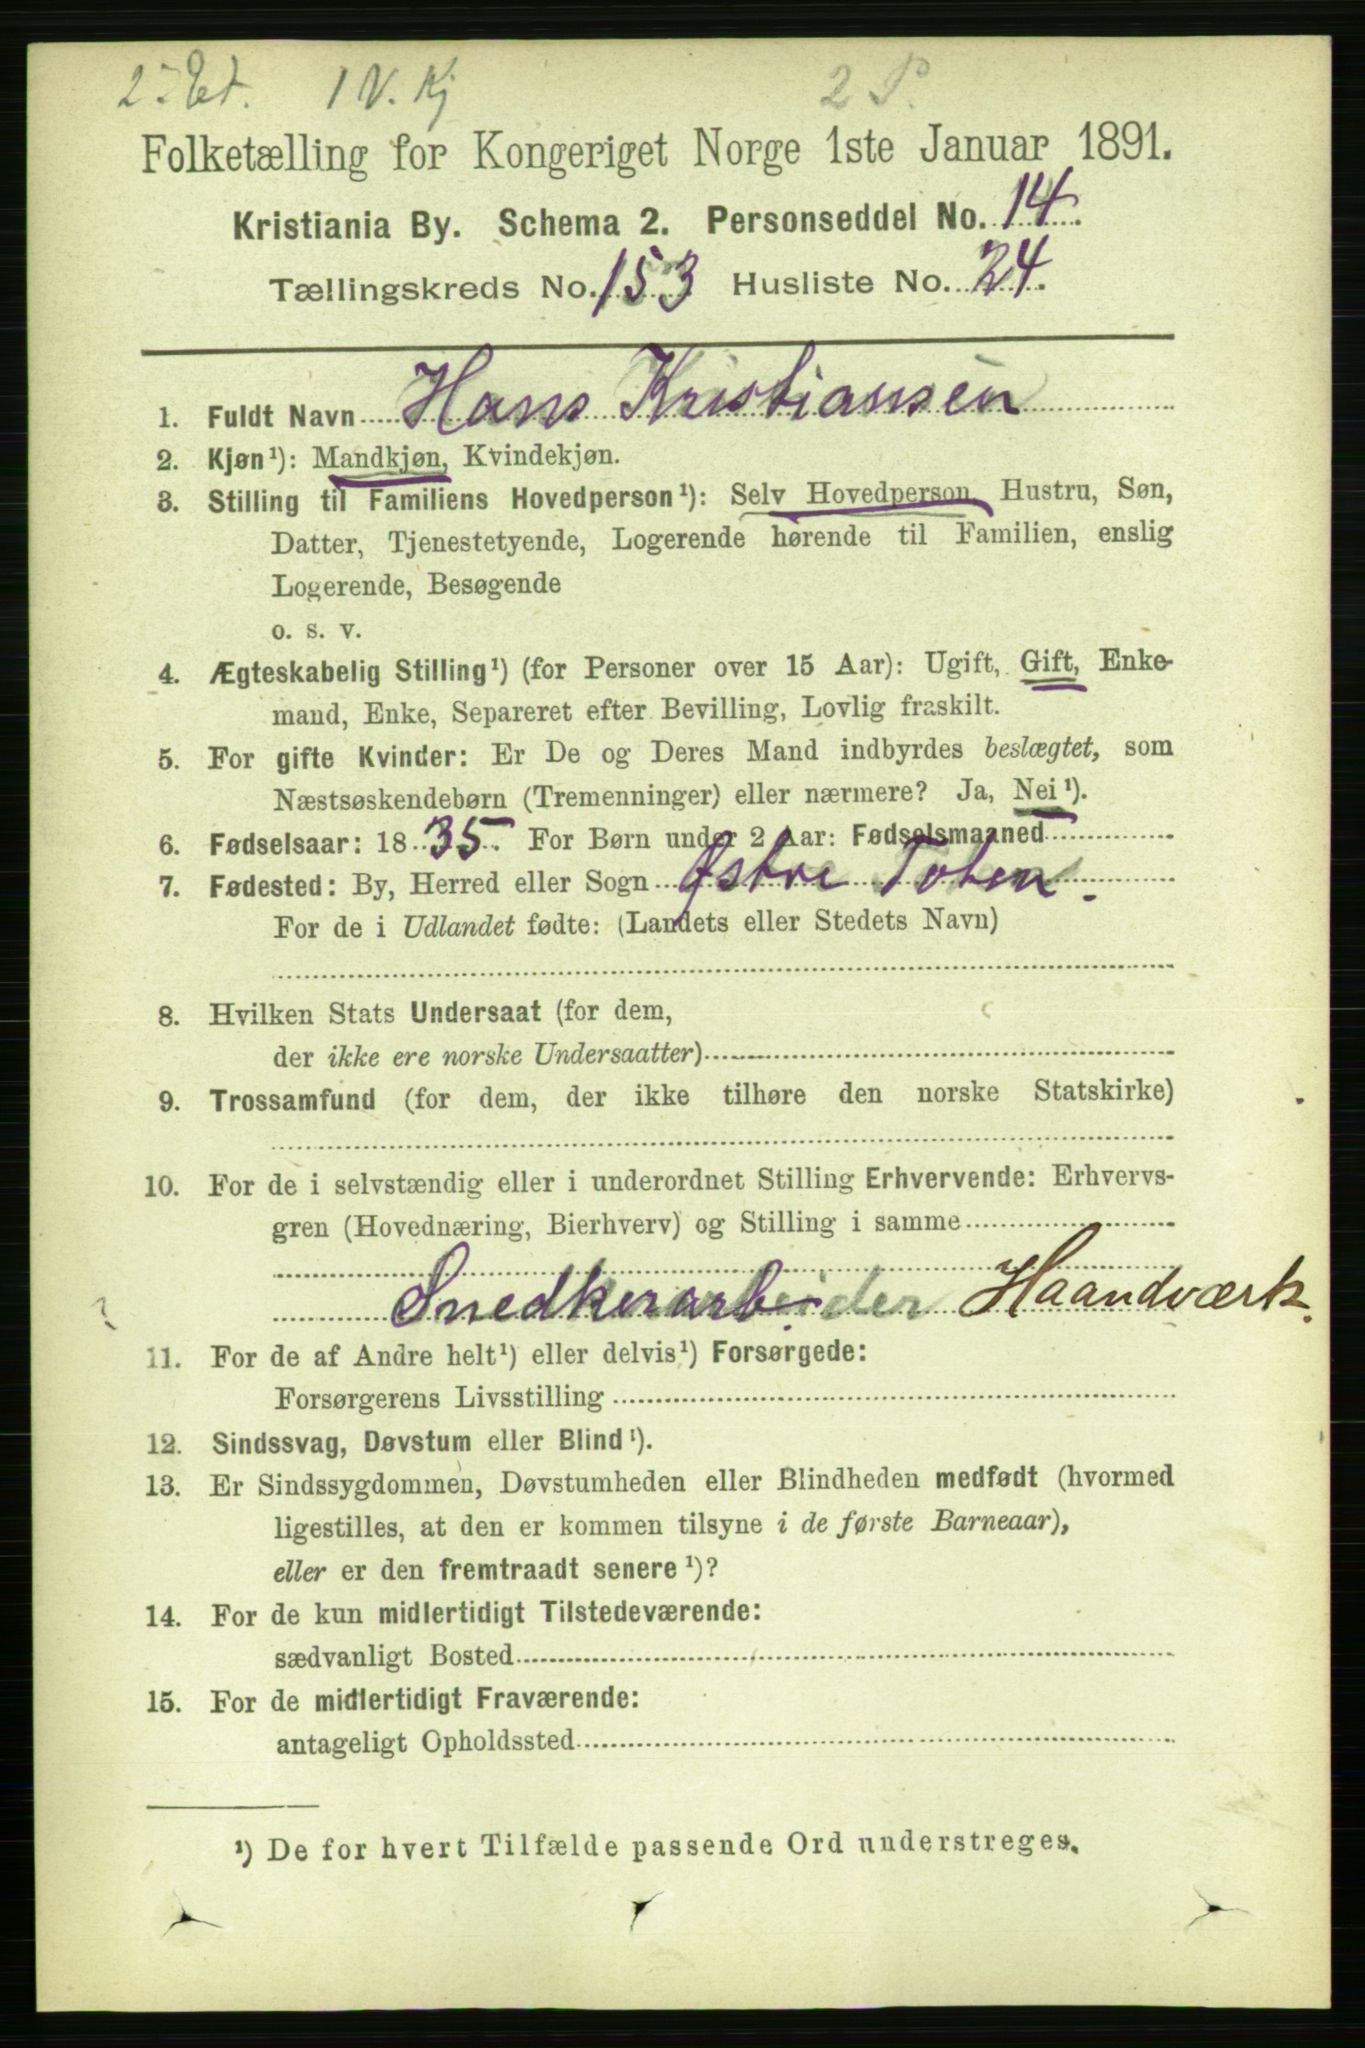 2 Et. 1 V. Kj 2 P.
Folketælling for Kongeriget Norge 1ste Januar 1891.
Kristiania By. Schema 2. Personseddel No. 14.
Tællingskreds No. 153 Husliste No. 24.
1. Fuldt Navn Hans Kristiansen
2. Kjøn¹): Mandkjøn, Kvindekjøn.
3. Stilling til Familiens Hovedperson¹): Selv Hovedperson, Hustru, Søn,
Datter, Tjenestetyende, Logerende hørende til Familien, enslig
Logerende, Besøgende
o. s. v.
4. Ægteskabelig Stilling¹) (for Personer over 15 Aar): Ugift, Gift, Enke-
mand, Enke, Separeret efter Bevilling, Lovlig fraskilt.
5. For gifte Kvinder: Er De og Deres Mand indbyrdes beslægtet, som
Næstsøskendebørn (Tremenninger) eller nærmere? Ja, Nei¹).
6. Fødselsaar: 1835. For Børn under 2 Aar: Fødselsmaaned
7. Fødested: By, Herred eller Sogn Østre Toten.
For de i Udlandet fødte: (Landets eller Stedets Navn)
8. Hvilken Stats Undersaat (for dem,
der ikke ere norske Undersaatter)
9. Trossamfund (for dem, der ikke tilhøre den norske Statskirke)
10. For de i selvstændig eller i underordnet Stilling Erhvervende: Erhvervs-
gren (Hovednæring, Bierhverv) og Stilling i samme
Snedkerarbeider Haandværk.
11. For de af Andre helt¹) eller delvis¹) Forsørgede:
Forsørgerens Livsstilling
12. Sindssvag, Døvstum eller Blind¹).
13. Er Sindssygdommen, Døvstumheden eller Blindheden medfødt (hvormed
ligestilles, at den er kommen tilsyne i de første Barneaar),
eller er den fremtraadt senere¹)?
14. For de kun midlertidigt Tilstedeværende:
sædvanligt Bosted
15. For de midlertidigt Fraværende:
antageligt Opholdssted
¹) De for hvert Tilfælde passende Ord understreges.